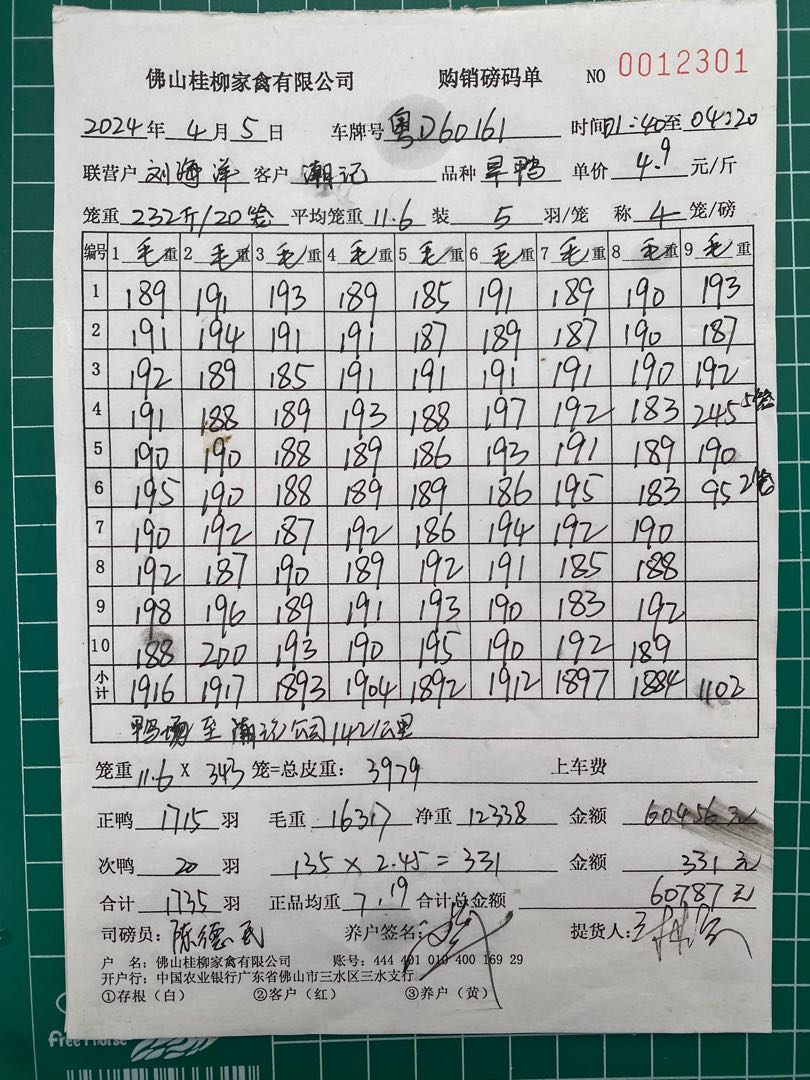 佛山桂柳家禽有限公司 购销磅码单 NO 0012301
2024年 4月 5日 车牌号 粤D60161 时间 01:40至 04:20
联营户 刘海洋 客户 潮记 品种 旱鸭 单价 4.9 元/斤
笼重 232斤/20笼 平均笼重 11.6 装 5 羽/笼 称 4 笼/磅
编号 1 毛重 2 毛重 3 毛重 4 毛重 5 毛重 6 毛重 7 毛重 8 毛重 9 毛重
1 189 191 193 189 185 191 189 190 193
2 191 194 191 191 187 189 187 190 187
3 192 189 185 191 191 191 191 190 192
4 191 188 189 193 188 197 192 183 245 5笼
5 190 190 188 189 186 193 191 189 190
6 195 190 188 189 189 186 195 183 95 2笼
7 190 192 187 192 186 194 192 190
8 192 187 190 189 192 191 185 188
9 198 196 189 191 193 190 183 192
10 188 200 193 190 195 190 192 189
小计 1916 1917 1893 1904 1892 1912 1897 1884 1102
鸭场至潮记公司1421公里
笼重 11.6 X 343 笼=总皮重: 3979 上车费
正鸭 1715 羽 毛重 16317 净重 12338 金额 60456元
次鸭 20 羽 135 × 2.45 = 331 金额 331元
合计 1735 羽 正品均重 7.19 合计总金额 60787元
司磅员: 陈德民 养户签名: 提货人:
户 名: 佛山桂柳家禽有限公司 账号: 444 401 010 400 169 29
开户行: 中国农业银行广东省佛山市三水区三水支行
①存根(白) ②客户(红) ③养户(黄)
Free Horse